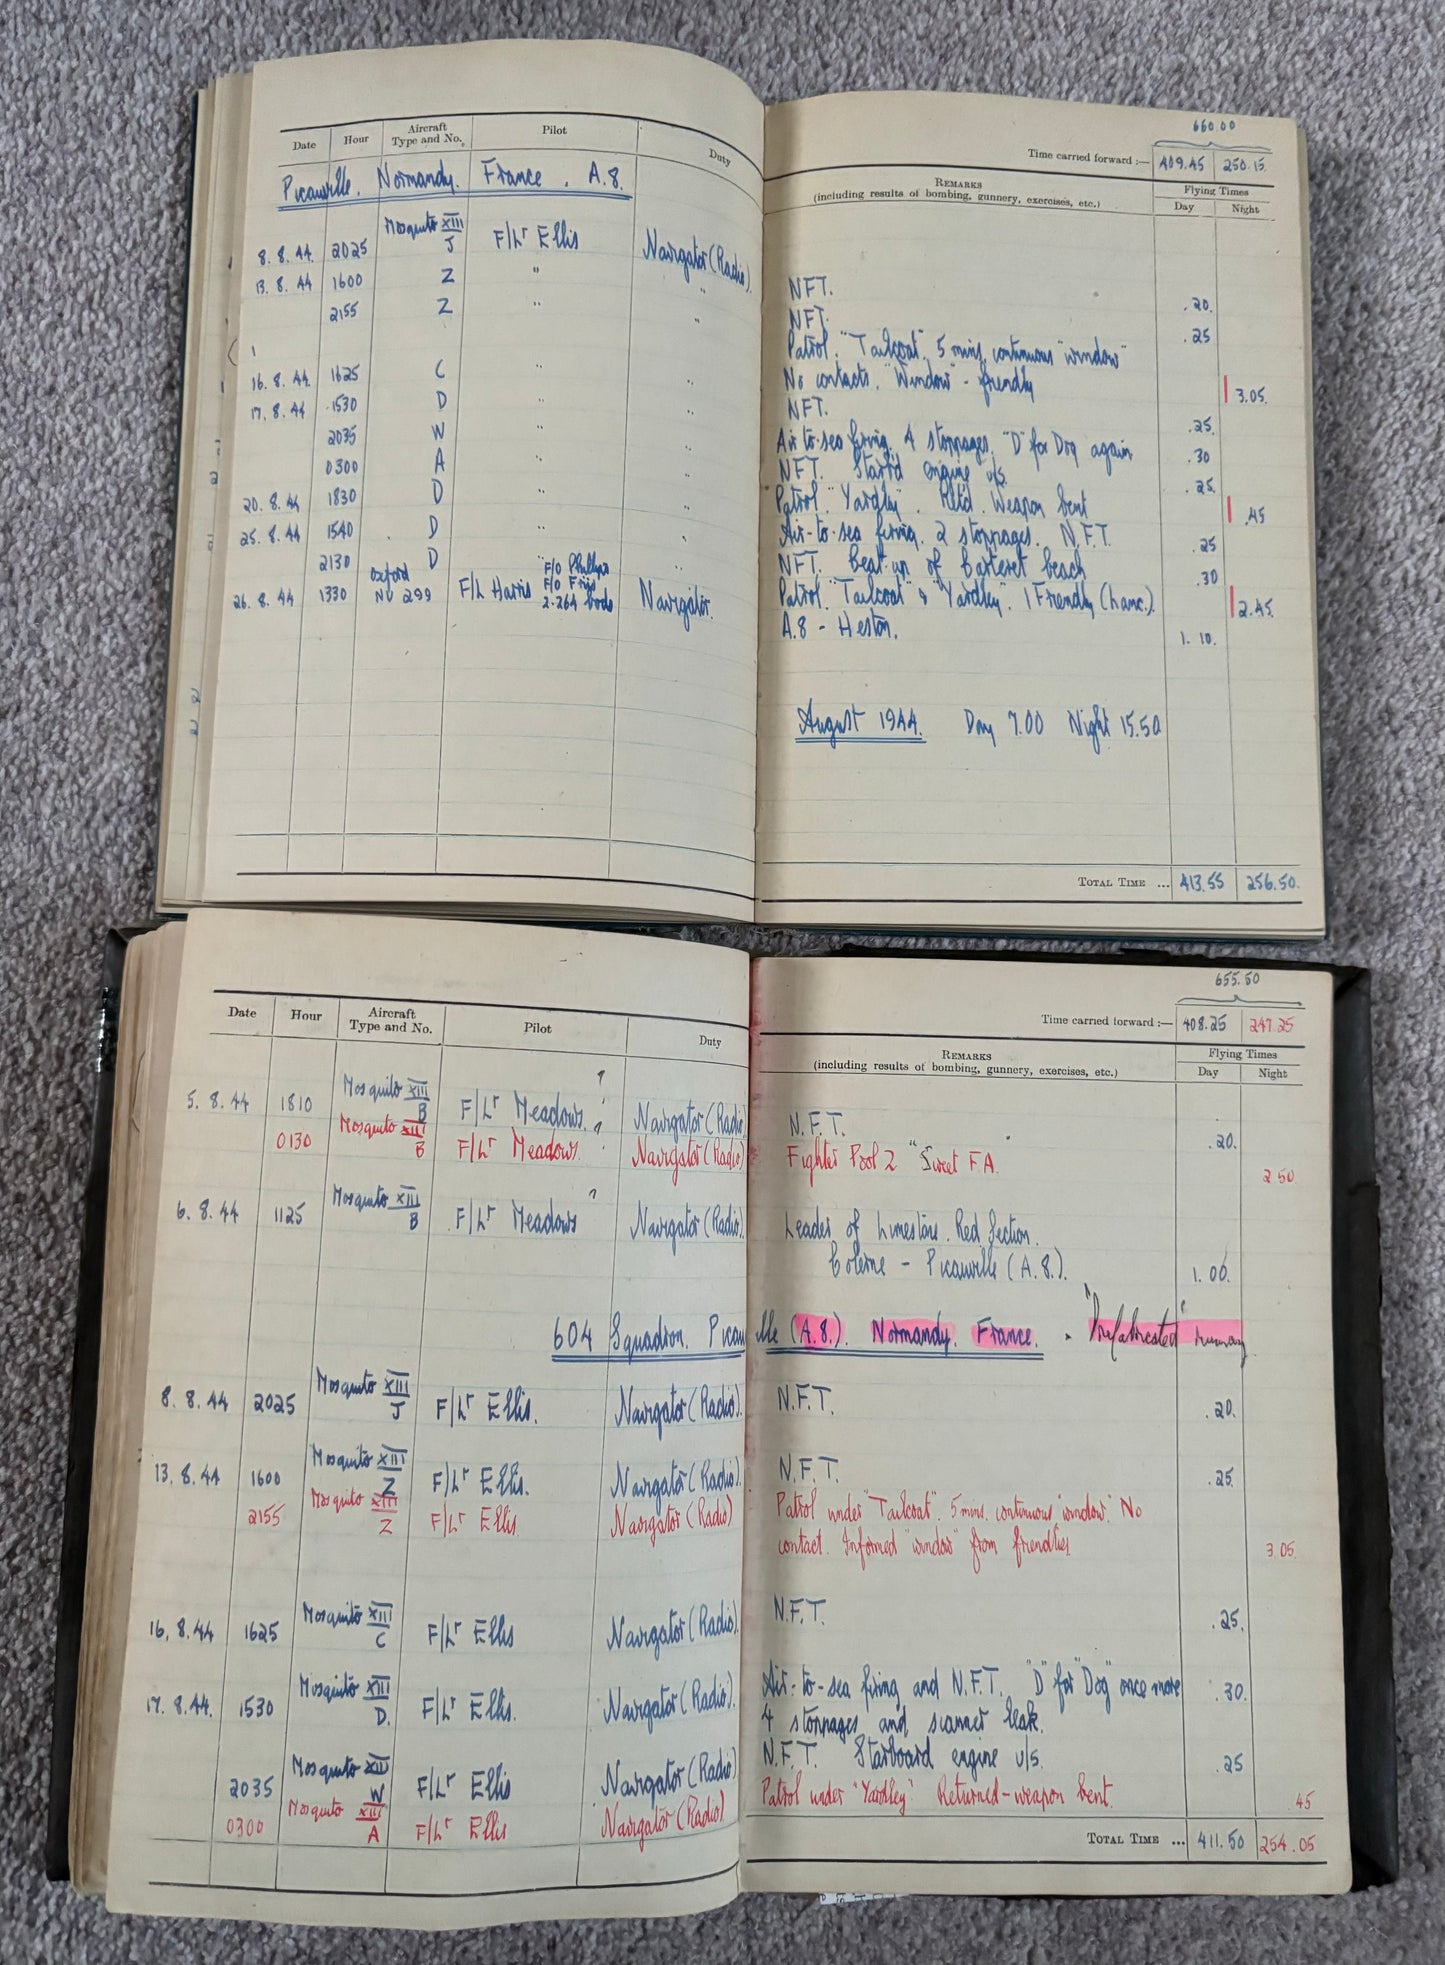 660.00
Time carried forward :— 409.45 250.15
Date Hour Aircraft Type and No. Pilot Duty
REMARKS
(including results of bombing, gunnery, exercises, etc.)
Flying Times
Day Night
Picauville. Normandy. France. A.8.
8.8.44. 2025 Mosquito XIII J F/Lr Ellis Navigator (Radio). NFT. .20.
13.8.44 1600 Z " " NFT. .25
2155 Z " " Patrol. "Tailcoat". 5 mins. continuous "window"
No contacts. "Window" - friendly 3.05.
16.8.44. 1625 C " " NFT. .25.
17.8.44 1530 D " " Air-to-sea firing. 4 stoppages. "D" for Dog again .30
2035 W " " NFT. Starb'd engine u/s. .25.
0300 A " " Patrol "Yardley". Ret'd. Weapon bent .45
20.8.44 1830 D " " Air-to-sea firing. 2 stoppages. N.F.T. .25
25.8.44 1540 D " " NFT. Beat-up of Carteret beach .30
2130 D " " Patrol. "Tailcoat" & "Yardley". 1 Friendly (Lanc.). 2.45.
26.8.44 1330 Oxford NV 299 F/L Harris F/O Phillips F/O 2-264 bods Navigator. A.8 - Heston. 1.10.
August 1944. Day 7.00 Night 15.50
TOTAL TIME ... 413.55 256.50.
655.50
Time carried forward :— 408.25 247.25
Date Hour Aircraft Type and No. Pilot Duty
REMARKS
(including results of bombing, gunnery, exercises, etc.)
Flying Times
Day Night
5.8.44 1810 Mosquito XIII B F/Lr Meadows. ? Navigator (Radio) N.F.T. .20.
0130 Mosquito XIII B F/Lr Meadows. Navigator (Radio) Fighter Pool 2 "Sweet FA. 2.50
6.8.44 1125 Mosquito XIII B F/Lr Meadows ? Navigator (Radio). Leader of Limestone Red Section.
Colerne - Picauville (A.8.). 1.00.
604 Squadron. Picauville (A.8.). Normandy. France. "Prefabricated" runway
8.8.44 2025 Mosquito XIII J F/Lr Ellis. Navigator (Radio). N.F.T. .20.
13.8.44 1600 Mosquito XIII Z F/Lr Ellis. Navigator (Radio). N.F.T. .25
2155 Mosquito XIII Z F/Lr Ellis Navigator (Radio) Patrol under "Tailcoat". 5 mins. continuous "window". No
contact. Informed "window" from friendlies 3.05.
16.8.44 1625 Mosquito XIII C F/Lr Ellis Navigator (Radio). N.F.T. .25.
17.8.44. 1530 Mosquito XIII D. F/Lr Ellis. Navigator (Radio). Air-to-sea firing and N.F.T. "D" for "Dog" once more .30.
4 stoppages and scanner leak.
2035 Mosquito XIII W F/Lr Ellis Navigator (Radio) N.F.T. Starboard engine u/s. .25
0300 Mosquito XIII A F/Lr Ellis Navigator (Radio) Patrol under "Yardley". Returned-weapon bent. 45
TOTAL TIME ... 411.50 254.05